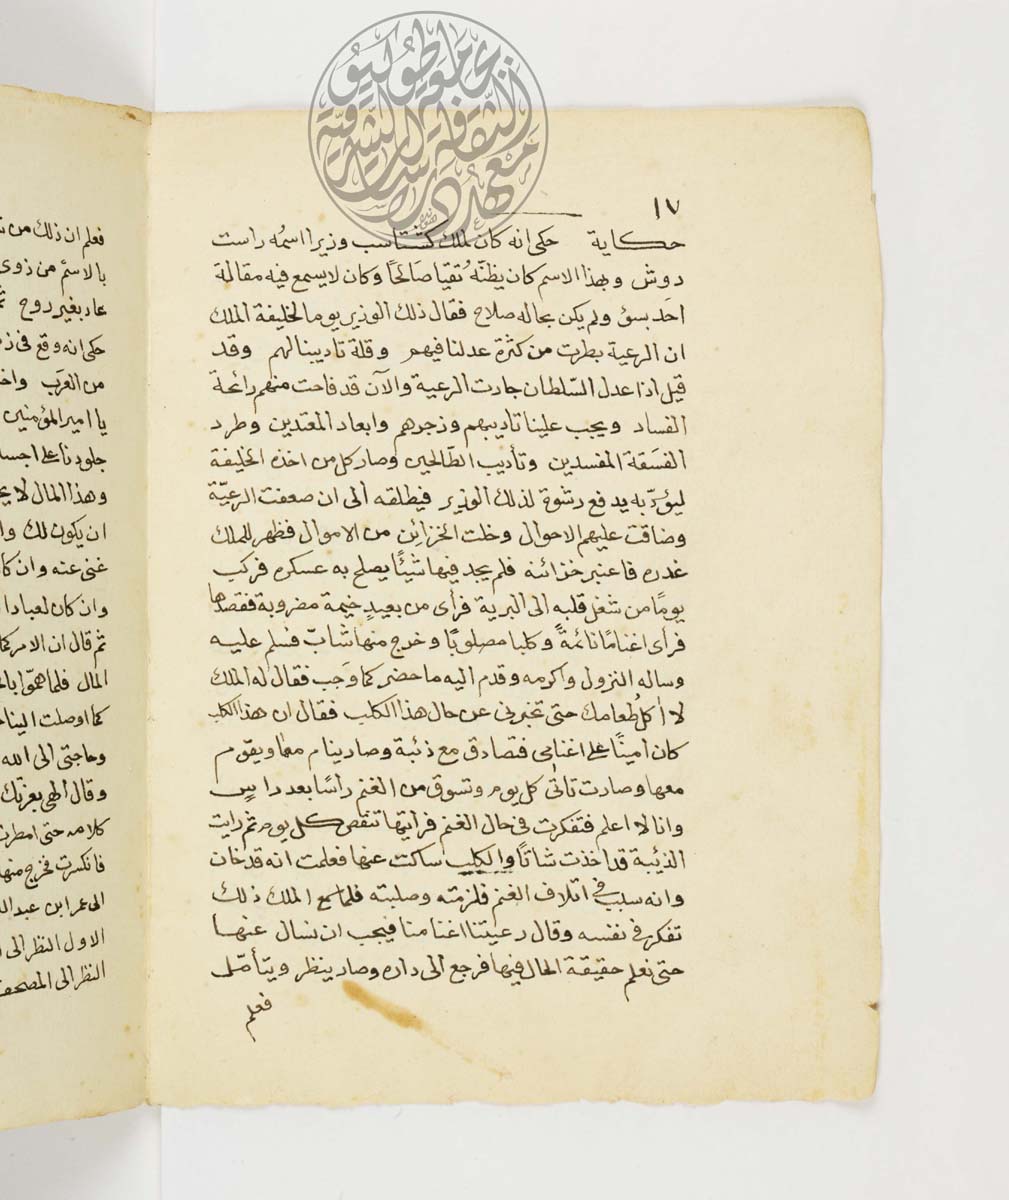 معهد دراسات الثقافة الشرقية
جامعة طوكيو
١٧
حكاية حكى انه كان لملك كشتاسب وزيرا اسمه راست
دوش وبهذا الاسم كان يظنّه تُقيا صَالحًا وكان لا يسمع فيه مقالة
احَد بسؤ ولم يكن بحاله صلاح فقال ذلك الوزير يوما لخليفة الملك
ان الرعية بطرت من كثرة عدلنا فيهم وقلة تاديبنا لهم وقد
قيل اذا عدل السّلطان جارت الرعية والآن قد فاحت منهم رائحة
الفساد ويجب علينا تاديبهم وزجرهم وابعاد المعتدين وطرد
الفسَقة المفسدين وتأديب الطّالحين وصار كل من اخذه الخليفة
ليؤدّ به يدفع رشوة لذلك الوزير فيطلقه الى ان ضعفت الرعيّة
وضاقت عليهم الاحوال وخلت الخزائن من الاموال فظهر للملك
غدره فاعتبر خزائنه فلم يجد فيها شيئًا يصلح به عسكره فركب
يومًا من شغل قلبه الى البرية فرأى من بعيدٍ خيمة مضروبة فقصدها
فرأى اغنامًا نائمةً وكلبا مصلوبًا وخرج منها شابّ فسلم عليه
وساله النزول واكرمه وقدم اليه ما حضر كما وَجب فقال له الملك
لا اٰكل طُعامك حتى تخبرنى عن حال هذا الكلب فقال ان هذا الكلب
كان أمينًا على اغنامى فتصادق مع ذئبة وصار ينام معها ويقوم
معها وصارت تاتى كل يوم وتسوق من الغنم رأسًا بعد راسٍ
وانا لا اعلم فتفكرت فى حال الغنم فرأيتها تنقص كل يوم ثم رايت
الذئبة قد اخذت شاتًا والكلب ساكت عنها فعلمت انه قد خان
وانه سبب فى اتلاف الغنم فلزمته وصلبته فلما سمع الملك ذلك
تفكر فى نفسه وقال رعيتنا اغنامنا فيجب ان نسال عنها
حتى نعلم حقيقة الحال فيها فرجع الى داره وصار ينظر ويتأمّل
فعلم
فعلم ان ذلك من
بالاسم من ذوى
عاد بغير روح
حكى انه وقع فى
من العرَب
يا امير المؤمنين
جلودنا على
وهذا المال لا
ان يكون لك
غنى عنه وان
وان كان لعباد
ثم قال ان الامر كما
المال فلما همّوا
كما اوصلت الينا
وحاجتى الى الله
وقال الهى بعزتك
كلامه حتى امطرت
فانكسرت فخرج منها
الى عمر ابن عبد
الاول النظر الى
النظر الى المصحف